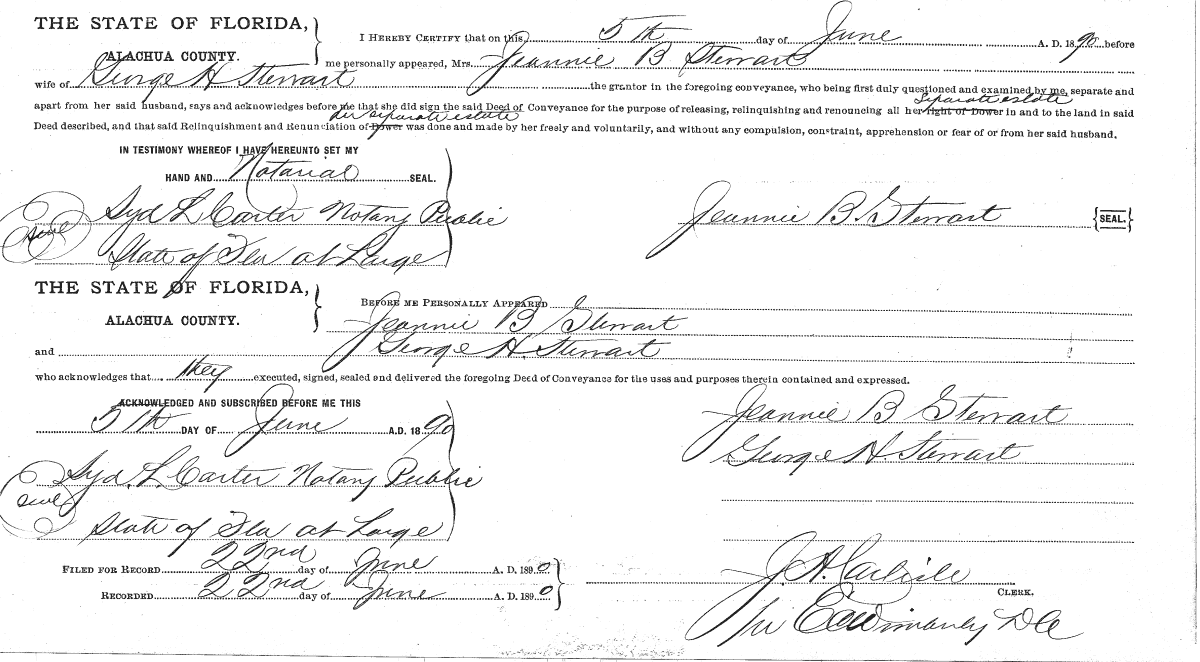 THE STATE OF FLORIDA,
ALACHUA COUNTY.
I HEREBY CERTIFY that on this 5th day of June A. D. 1890 before
me personally appeared, Mrs. Jeannie B Stewart
wife of George H Stewart the grantor in the foregoing conveyance, who being first duly questioned and examined by me, separate and
separate estate
apart from her said husband, says and acknowledges before me that she did sign the said Deed of Conveyance for the purpose of releasing, relinquishing and renouncing all her right of Dower in and to the land in said
her separate estate
Deed described, and that said Relinquishment and Renunciation of Dower was done and made by her freely and voluntarily, and without any compulsion, constraint, apprehension or fear of or from her said husband.
IN TESTIMONY WHEREOF I HAVE HEREUNTO SET MY
HAND AND Notarial SEAL.
Syd L Carter Notary Public
State of Fla at Large
Jeannie B. Stewart {SEAL.}
THE STATE OF FLORIDA,
ALACHUA COUNTY.
BEFORE ME PERSONALLY APPEARED
Jeannie B Stewart
George H. Stewart
and
who acknowledges that they executed, signed, sealed and delivered the foregoing Deed of Conveyance for the uses and purposes therein contained and expressed.
ACKNOWLEDGED AND SUBSCRIBED BEFORE ME THIS
5th DAY OF June A.D. 1890
Jeannie B Stewart
George H. Stewart
Syd. L. Carter Notary Public
State of Fla at Large
FILED FOR RECORD 22nd day of June A. D. 1890
RECORDED 22nd day of June A. D. 1890
J. A. Carlisle
CLERK.
DC